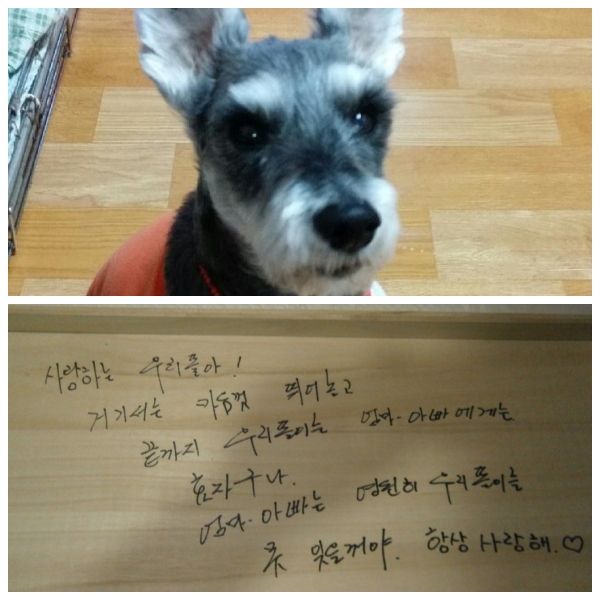 사랑하는 우리똘아!
거기서는 마음껏 뛰어놀고
끝까지 우리똘이는 엄마·아빠에게는
효자구나.
엄마·아빠는 영원히 우리똘이를
못 잊을꺼야. 항상 사랑해.♡